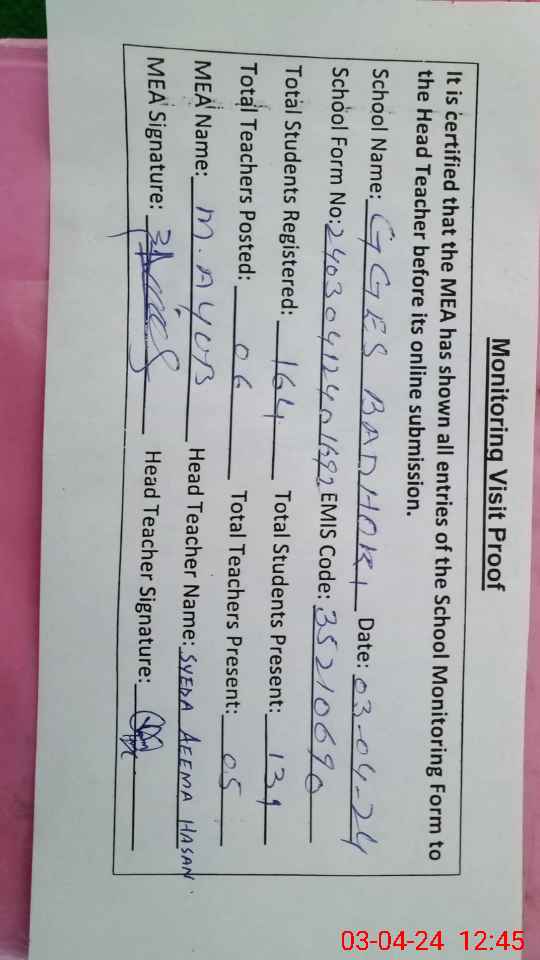 Monitoring Visit Proof
It is certified that the MEA has shown all entries of the School Monitoring Form to
the Head Teacher before its online submission.
School Name: GGES BADHOKI Date: 03-04-24
School Form No: 24030412401692 EMIS Code: 35210690
Total Students Registered: 164 Total Students Present: 139
Total Teachers Posted: 06 Total Teachers Present: 05
MEA Name: M. AYUB Head Teacher Name: SYEDA AEEMA HASAN
MEA Signature: Head Teacher Signature:
03-04-24 12:45